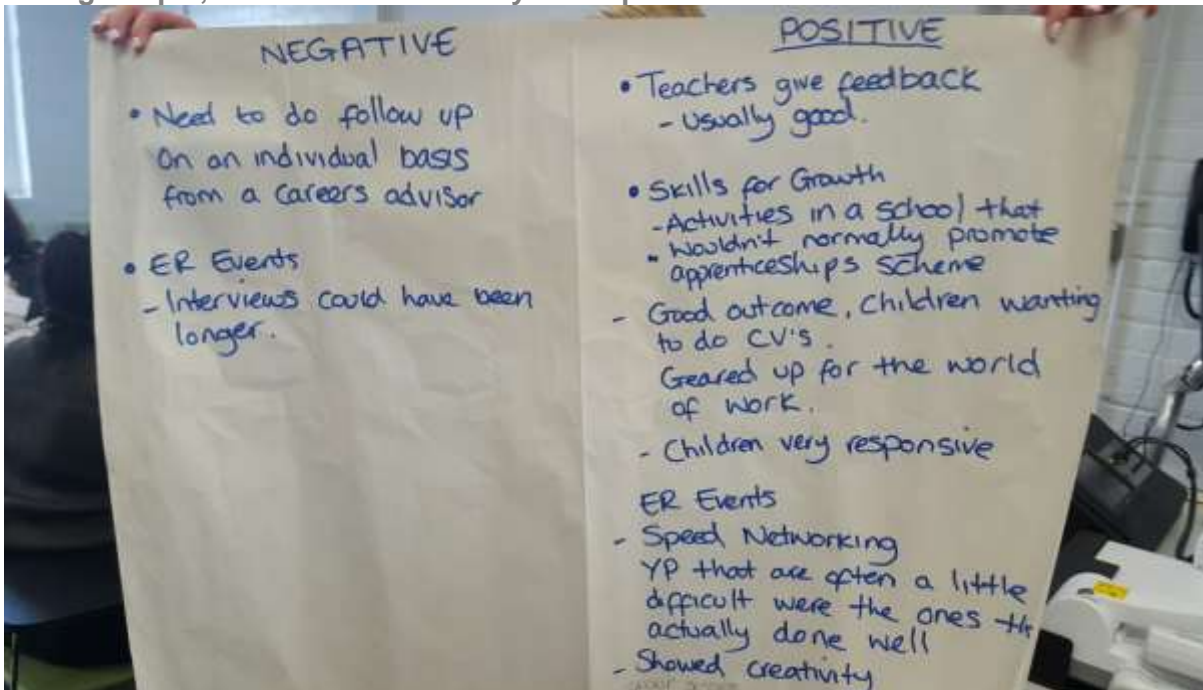 NEGATIVE
• Need to do follow up
on an individual basis
from a careers advisor
• ER Events
- Interviews could have been
longer.
POSITIVE
• Teachers give feedback
- Usually good.
• Skills for Growth
- Activities in a school that
- wouldn't normally promote
apprenticeships scheme
- Good outcome, children wanting
to do CV's.
Geared up for the world
of work.
- Children very responsive
ER Events
- Speed Networking
YP that are often a little
difficult were the ones
actually done well
- Showed creativity